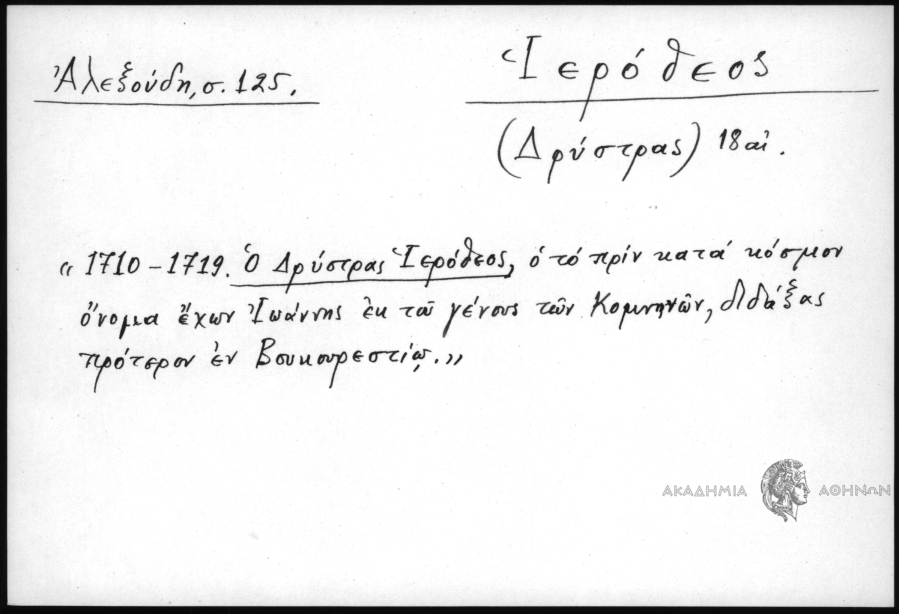 Ἀλεξούδη, σ. 125.
Ἱερόθεος
(Δρύστρας) 18 αἰ.
« 1710 – 1719. Ὁ Δρύστρας Ἱερόθεος, ὁ τό πρίν κατά κόσμον
ὄνομα ἔχων Ἰωάννης ἐκ τοῦ γένους τῶν Κομνηνῶν, διδάξας
πρότερον ἐν Βουκουρεστίῳ.»
ΑΚΑΔΗΜΙΑ ΑΘΗΝΩΝ